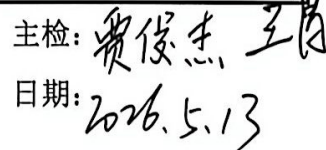 主检：贾俊杰 王肖
日期：2026.5.13